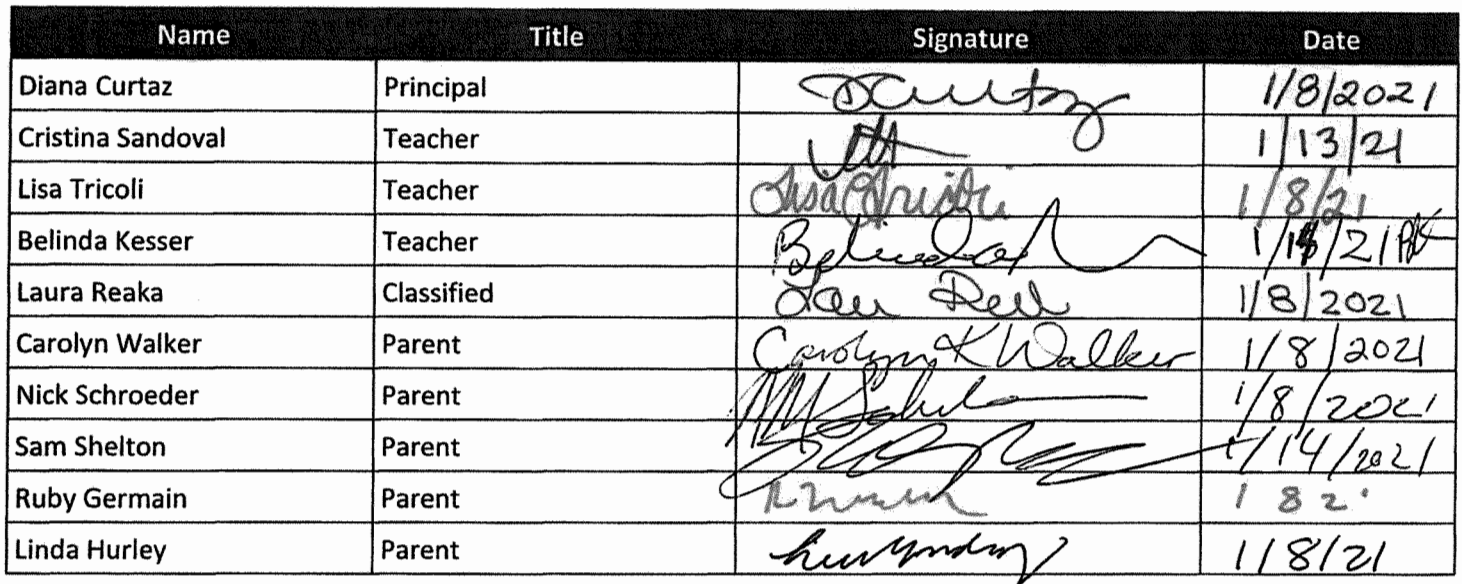 Name Title Signature Date
Diana Curtaz Principal DCurtaz 1/8/2021
Cristina Sandoval Teacher 1/13/21
Lisa Tricoli Teacher Lisa Tricoli 1/8/21
Belinda Kesser Teacher Belinda 1/ /21 BK
Laura Reaka Classified 1/8/2021
Carolyn Walker Parent Carolyn K Walker 1/8/2021
Nick Schroeder Parent 1/8/2021
Sam Shelton Parent 1/14/2021
Ruby Germain Parent 1 8 2
Linda Hurley Parent 1/8/21